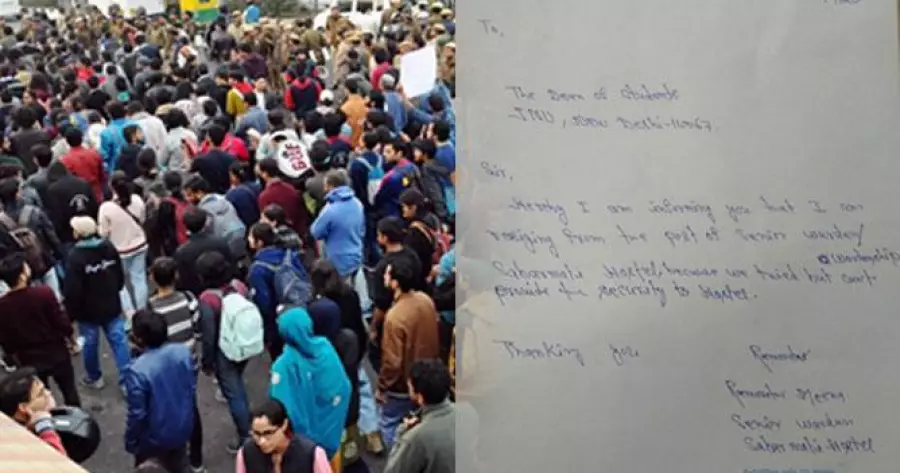 To,
The Dean of Students
JNU, New Delhi-110067.
Sir,
Hereby I am informing you that I am
resigning from the post of Senior warden/
wardenship
Sabarmati Hostel, because we tried but can't
provide the security to Hostel.
Thanking you
Ramavtar Meena
Senior warden
Sabarmati-Hostel